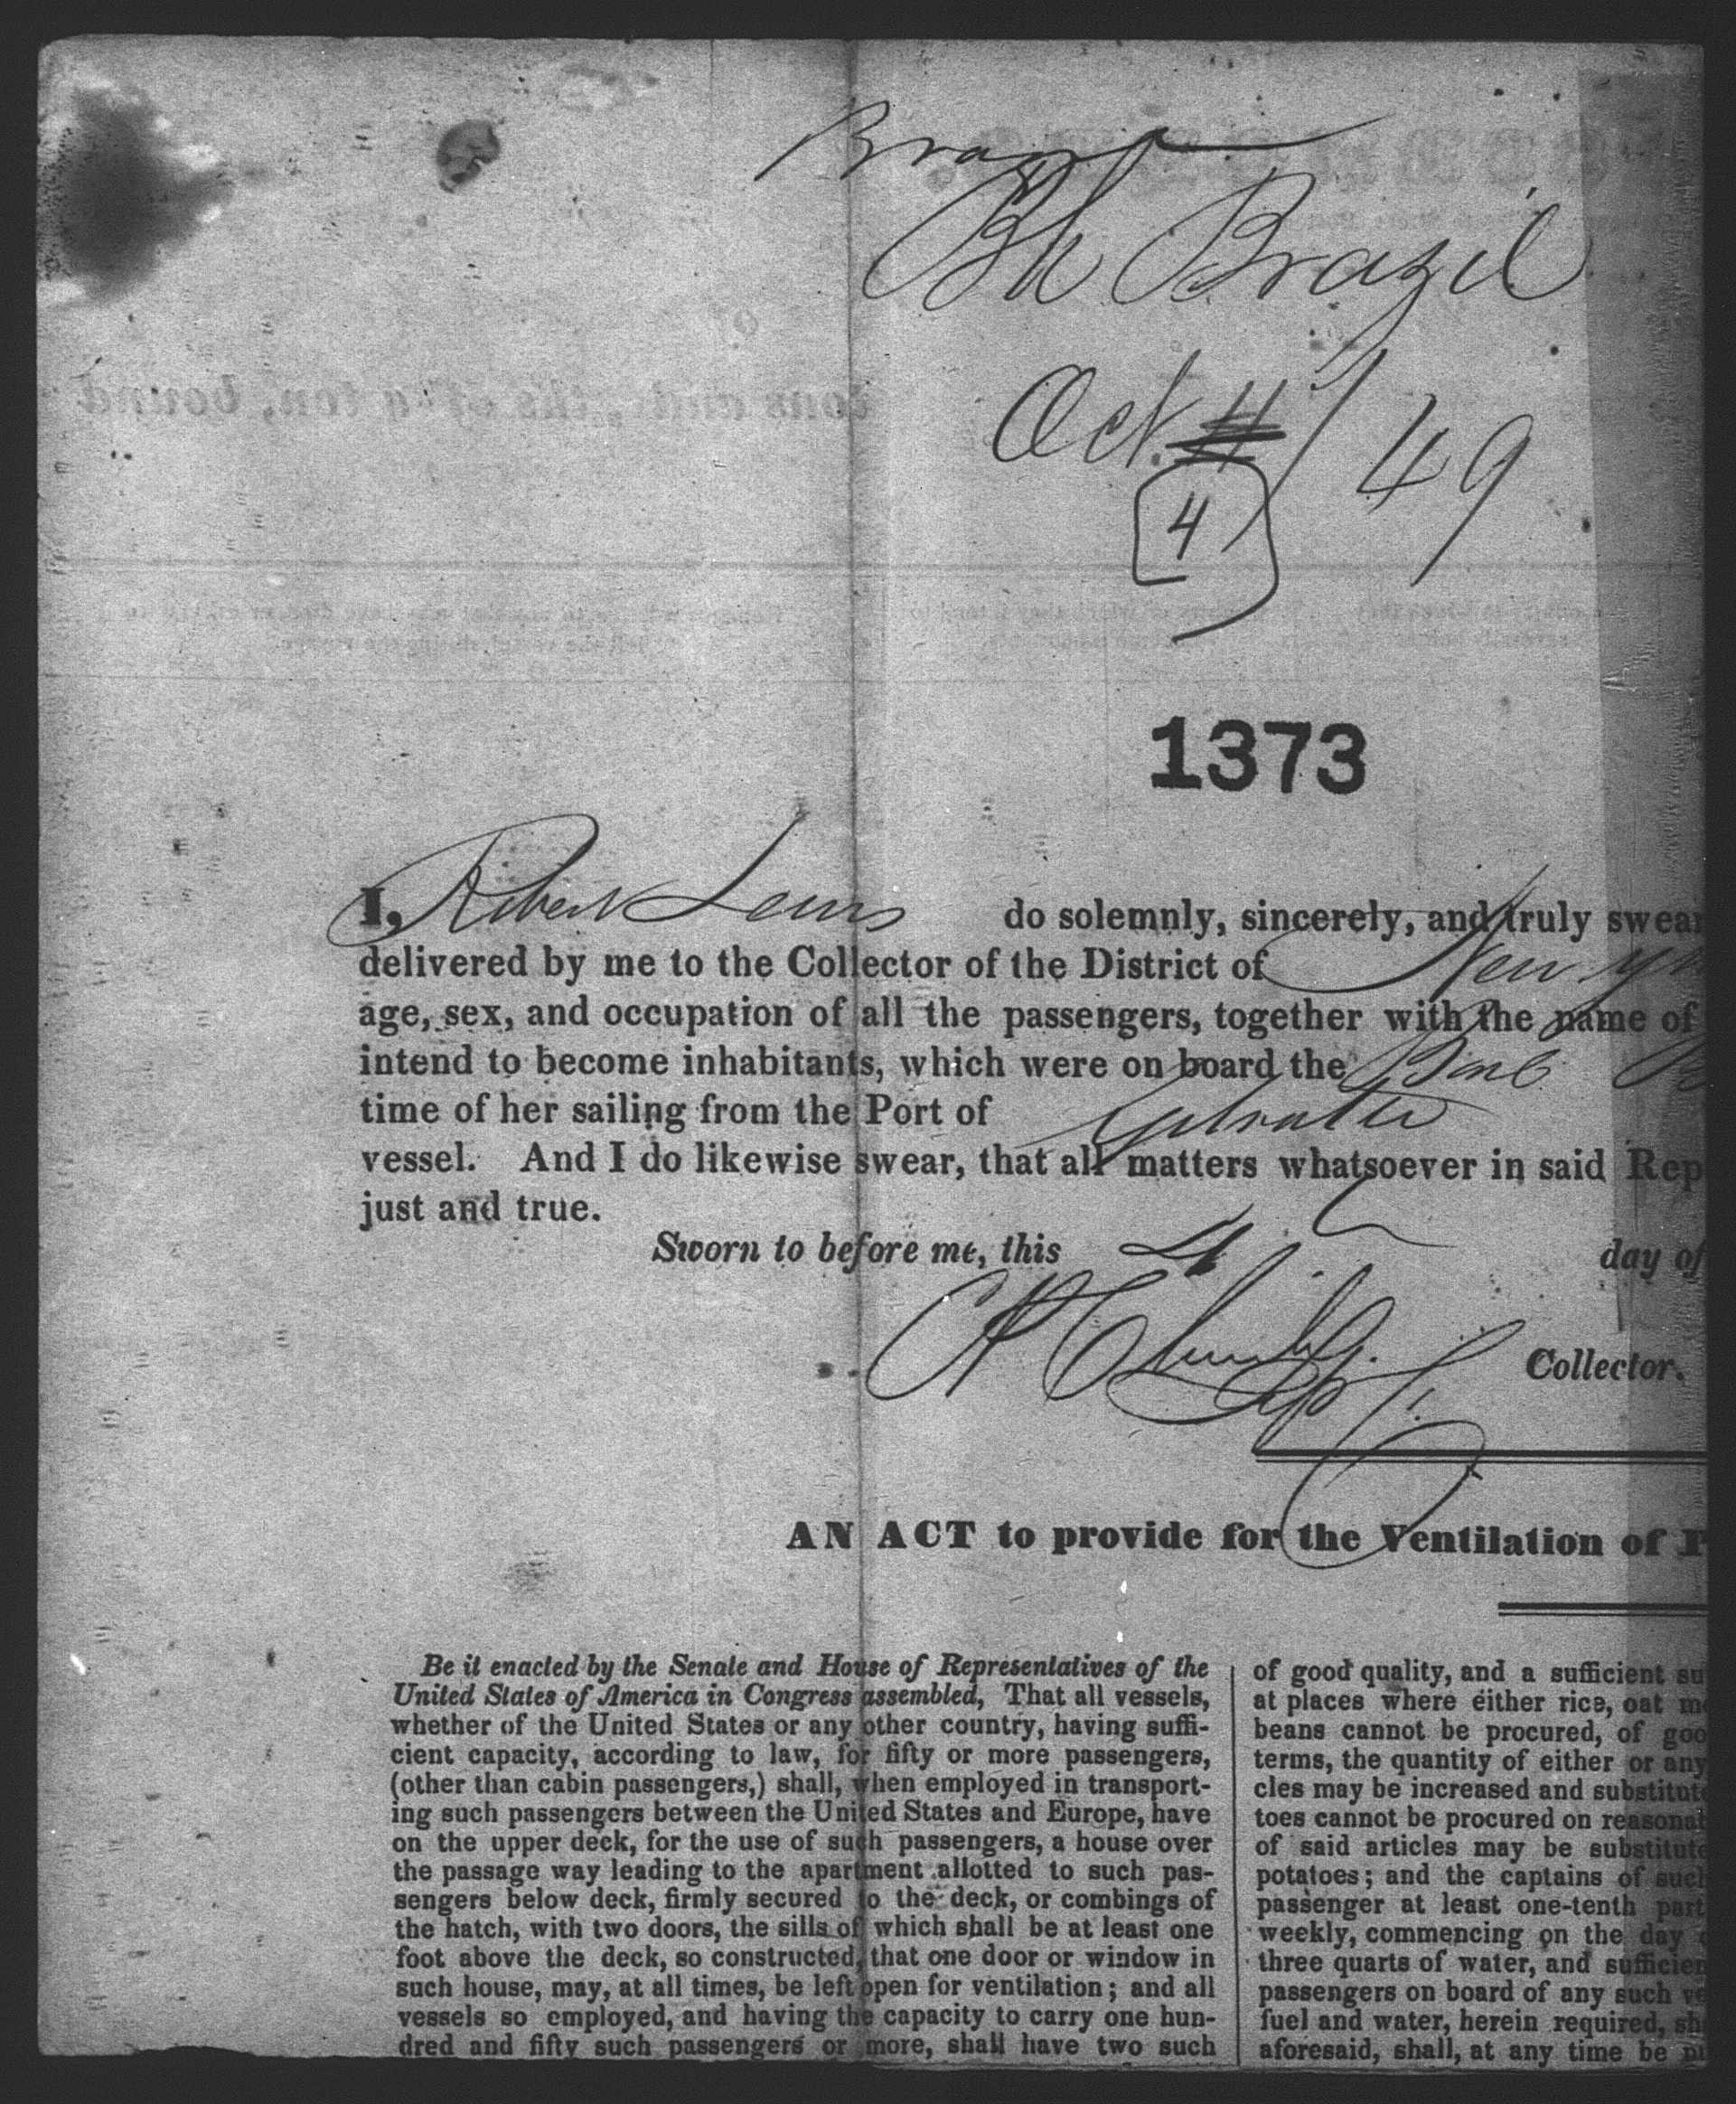 Bk Brazil
Oct. 4 / 49
4
1373
I, Robert Lewis do solemnly, sincerely, and truly swear
delivered by me to the Collector of the District of New Yo
age, sex, and occupation of all the passengers, together with the name of
intend to become inhabitants, which were on board the Bark B
time of her sailing from the Port of Gibralter
vessel. And I do likewise swear, that all matters whatsoever in said Rep
just and true.
Sworn to before me, this 4 day of
Collector.
AN ACT to provide for the Ventilation of P
Be it enacted by the Senate and House of Representatives of the
United States of America in Congress assembled, That all vessels,
whether of the United States or any other country, having suffi-
cient capacity, according to law, for fifty or more passengers,
(other than cabin passengers,) shall, when employed in transport-
ing such passengers between the United States and Europe, have
on the upper deck, for the use of such passengers, a house over
the passage way leading to the apartment allotted to such pas-
sengers below deck, firmly secured to the deck, or combings of
the hatch, with two doors, the sills of which shall be at least one
foot above the deck, so constructed, that one door or window in
such house, may, at all times, be left open for ventilation; and all
vessels so employed, and having the capacity to carry one hun-
dred and fifty such passengers or more, shall have two such
of good quality, and a sufficient su
at places where either rice, oat me
beans cannot be procured, of goo
terms, the quantity of either or any
cles may be increased and substitute
toes cannot be procured on reasonat
of said articles may be substitute
potatoes; and the captains of such
passenger at least one-tenth part
weekly, commencing on the day
three quarts of water, and sufficien
passengers on board of any such ve
fuel and water, herein required, sh
aforesaid, shall, at any time be pu